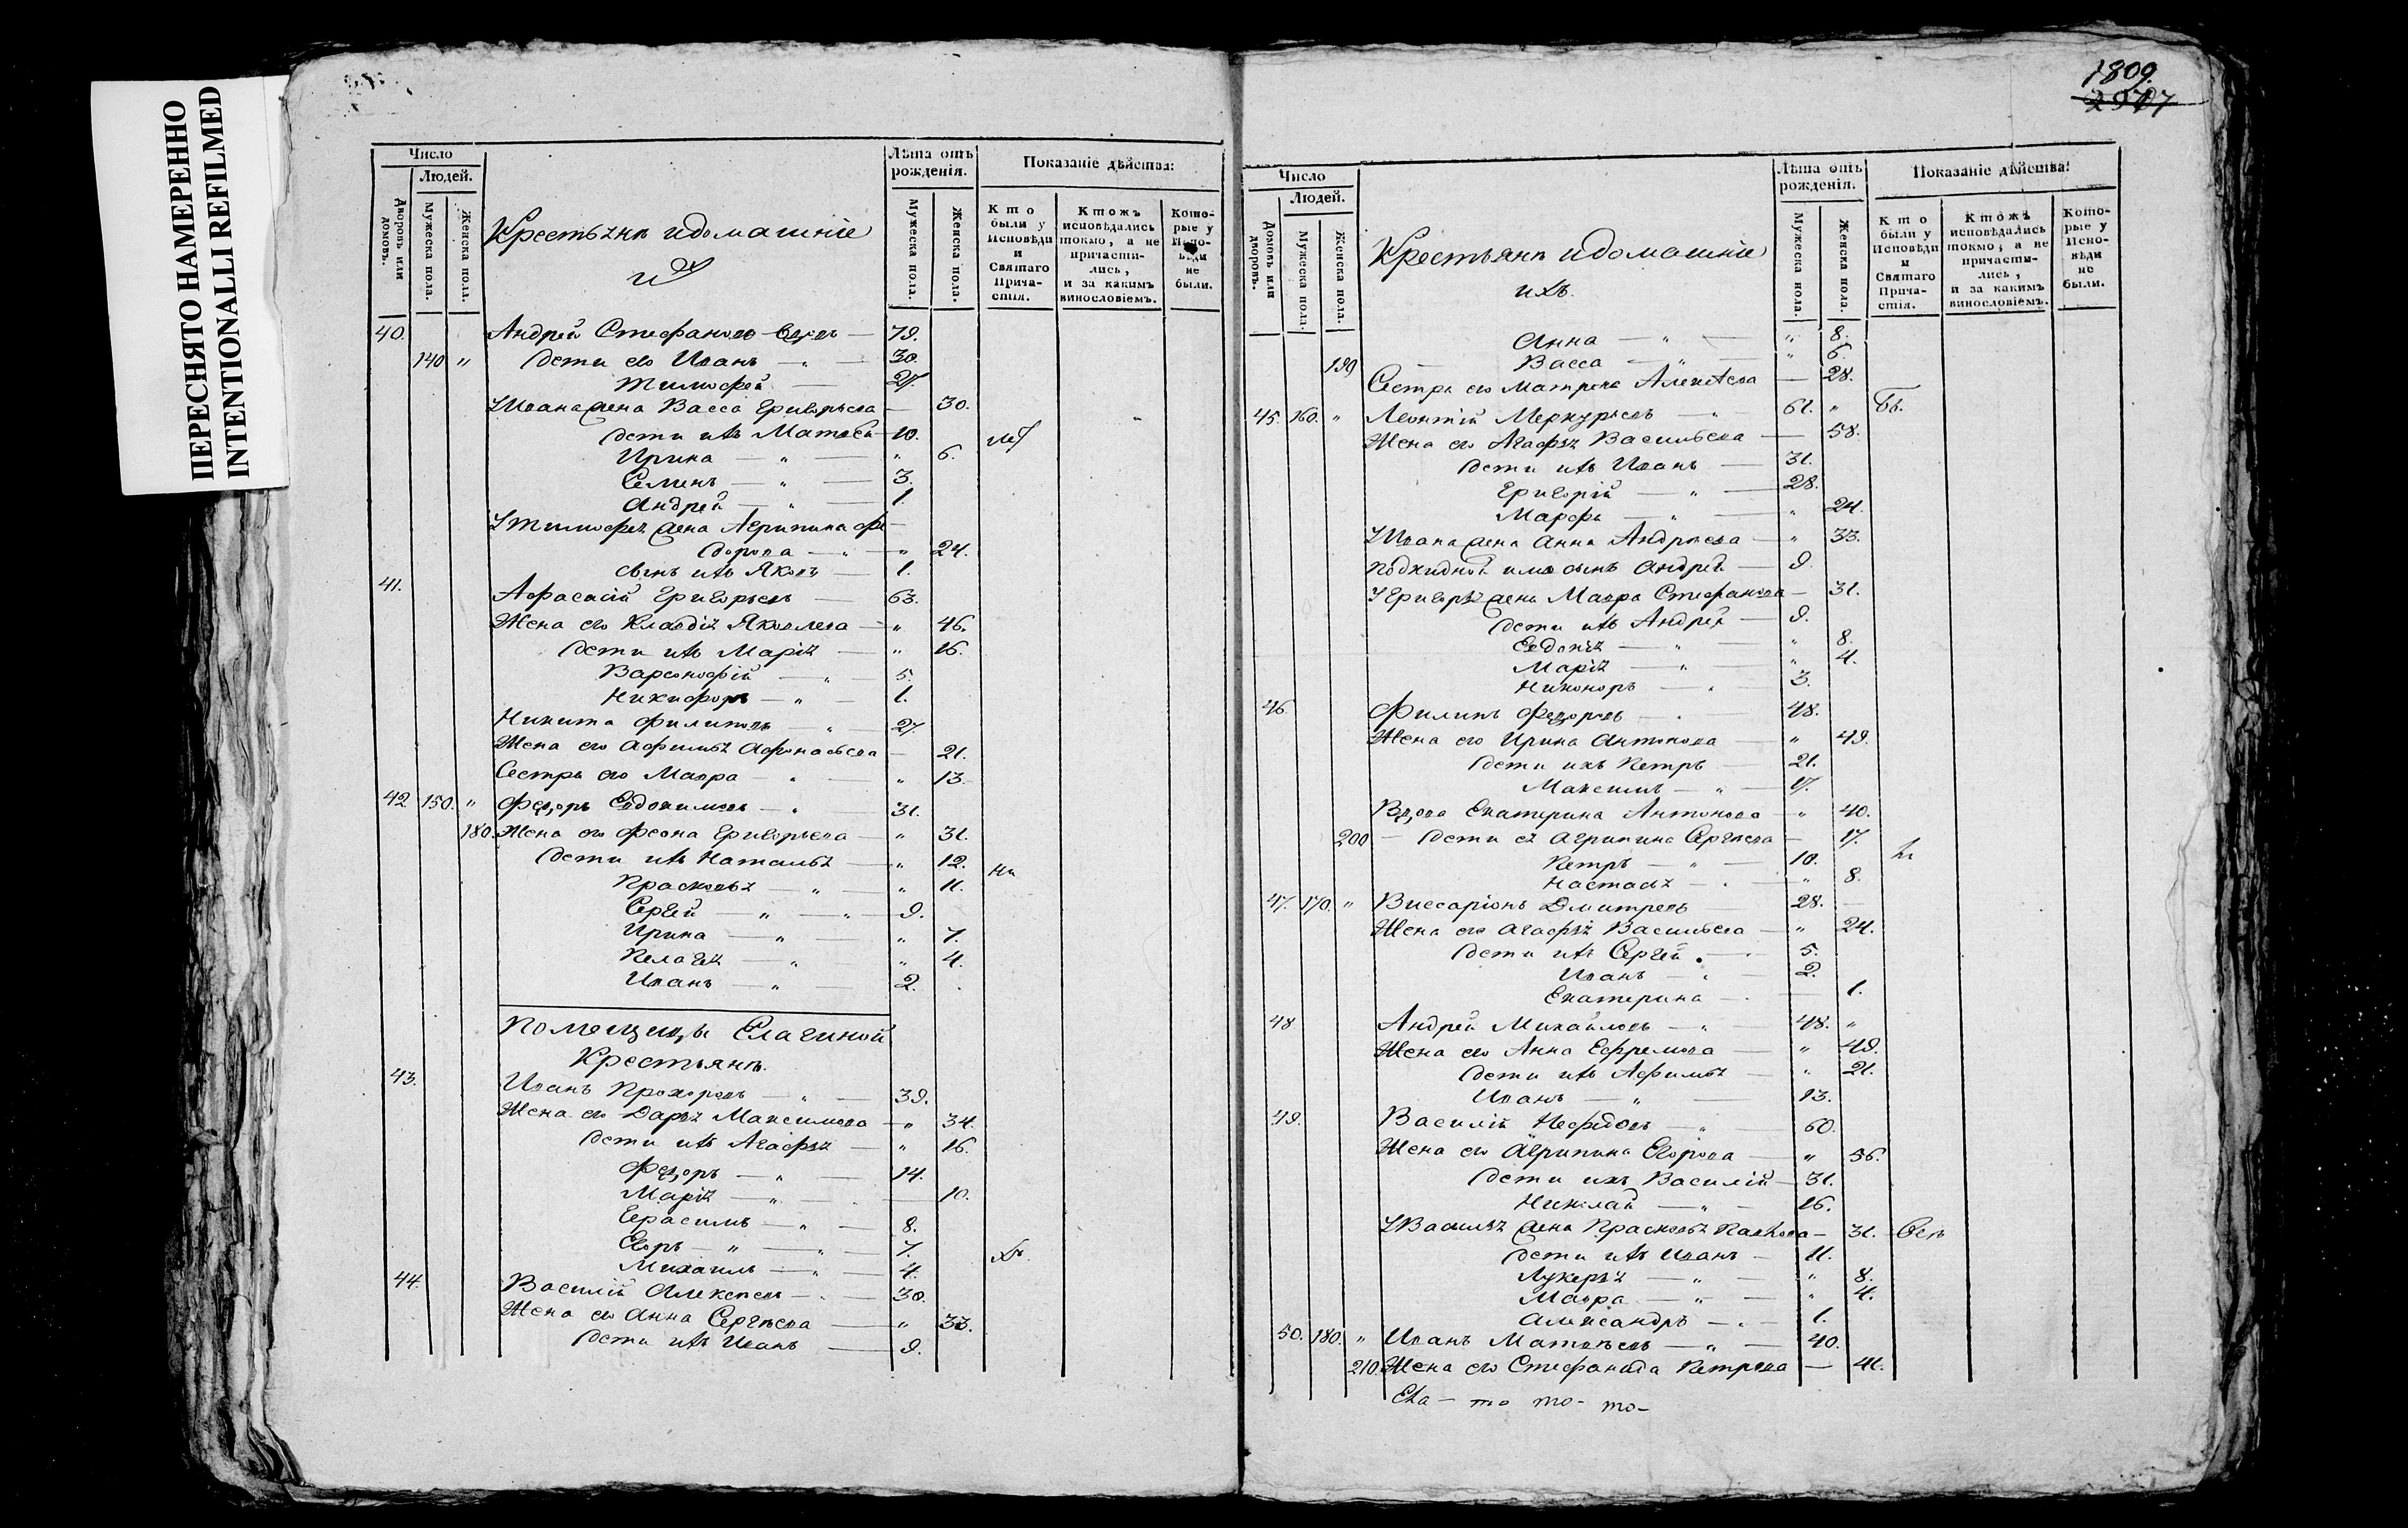 ПЕРЕСНЯТО НАМЕРЕННО
INTENTIONALLI REFILMED
Число
Людей.
Дворовъ или домовъ.
Мужеска пола.
Женска пола.
Крестьянъ идомашніе
ихъ
Лѣта отъ рожденія.
Мужеска пола.
Женска пола.
Показаніе дѣйства:
Кто были у Исповѣди и Святаго Причастія.
Ктожъ исповѣдались токмо, а не причастились, и за какимъ винословіемъ.
Которые у Исповѣди не были.
40. Андрей Стефановъ — 79.
140 " Дети его Иванъ — " 30.
Тимофей — 27.
УИвана жена Васса Григорьева — 30.
Дети ихъ Матвей — 10.
Ирина — " — " 6.
Семенъ — " — 3.
Андрей — " — 1.
УТимофея жена Агрипина Фе-
дорова — " — " 24.
Сынъ ихъ Яковъ — 1.
41. Афанасій Григорьевъ — 63.
Жена его Клавдія Яковлева — " 46.
Дети ихъ Марія — " 16.
Варсонофій — " 5.
Никифоръ — " — 1.
Никита Филиповъ — " 27.
Жена его Афимья Афонасьева — 21.
Сестра его Мавра — " " 13.
42 150. " Федоръ Евдокимовъ — " 31.
180. Жена его Феона Григорьева — " 31.
Дети ихъ Наталья — " 12.
Прасковья — " — " 11.
Сергей — " — " 9.
Ирина — " — " 7.
Пелагея — " " 4.
Иванъ — " — 2.
Помещицы Елагиной
Крестьянъ.
43. Иванъ Прохоровъ — " — 39.
Жена его Дарья Максимова — " 34.
Дети ихъ Агафья — " 16.
Федоръ — " — 14.
Марія — " — 10.
Герасимъ — " — 8.
Егоръ — " — " 7.
Михаилъ — " — 4.
44. Василій Алексеевъ — " — 30.
Жена его Анна Сергѣева — " 33.
Дети ихъ Иванъ — 9.
1809.
Число
Людей.
Домовъ или дворовъ.
Мужеска пола.
Женска пола.
Крестьянъ идомашніе
ихъ.
Лѣта отъ рожденія.
Мужеска пола.
Женска пола.
Показаніе дѣйства:
Кто были у Исповѣди и Святаго Причастія.
Ктожъ исповѣдались токмо, а не причастились, и за какимъ винословіемъ.
Которые у Исповѣди не были.
Анна — " — " 8.
190 Васса — " " 6.
Сестра его Матрена Алексѣева — 28.
45. 160. " Леонтій Меркурьевъ — " 61. "
Жена его Агафья Васильева — 58.
Дети ихъ Иванъ — 31.
Григорій — " — 28.
Марфа — " — " 24.
УИвана жена Анна Андреева — " 33.
Подкидной имъ сынъ Андрей — 9.
УГригорья жена Мавра Стефанова — 31.
Дети ихъ Андрей — 9.
Евдокія — " — " 8.
Марія — " — " 4.
Никоноръ — " — 3.
46. Филипъ Федоровъ — " — 48.
Жена его Ирина Антонова — " 49.
Дети ихъ Петръ — 21.
Максимъ — " — 17.
Вдова Екатерина Антонова — " 40.
200 — Дети ея Агрипина Сергѣева — 17.
Петръ — " — 10.
Настасья — " — " 8.
47. 170. " Висаріонъ Дмитревъ — 28. —
Жена его Агафья Васильева — " 24.
Дети ихъ Сергей — 5.
Иванъ — " — 2.
Екатерина — " — 1.
48 Андрей Михайловъ — " — 48. "
Жена его Анна Ефремова — " 49.
Дети ихъ Афимья — " 21.
Иванъ — " — 13.
49. Василій Нефедовъ — " — 60.
Жена его Агрипина Егорова — " 56.
Дети ихъ Василій — 31.
Николай — " — 16.
УВасилья жена Прасковья — 31.
Дети ихъ Иванъ — 11.
Лукерья — " — " 8.
Мавра — " — " 4.
Александръ — " — 1.
50. 180. " Иванъ Матвѣевъ — " — 40.
210. Жена его Стефанида Петрова — 41.